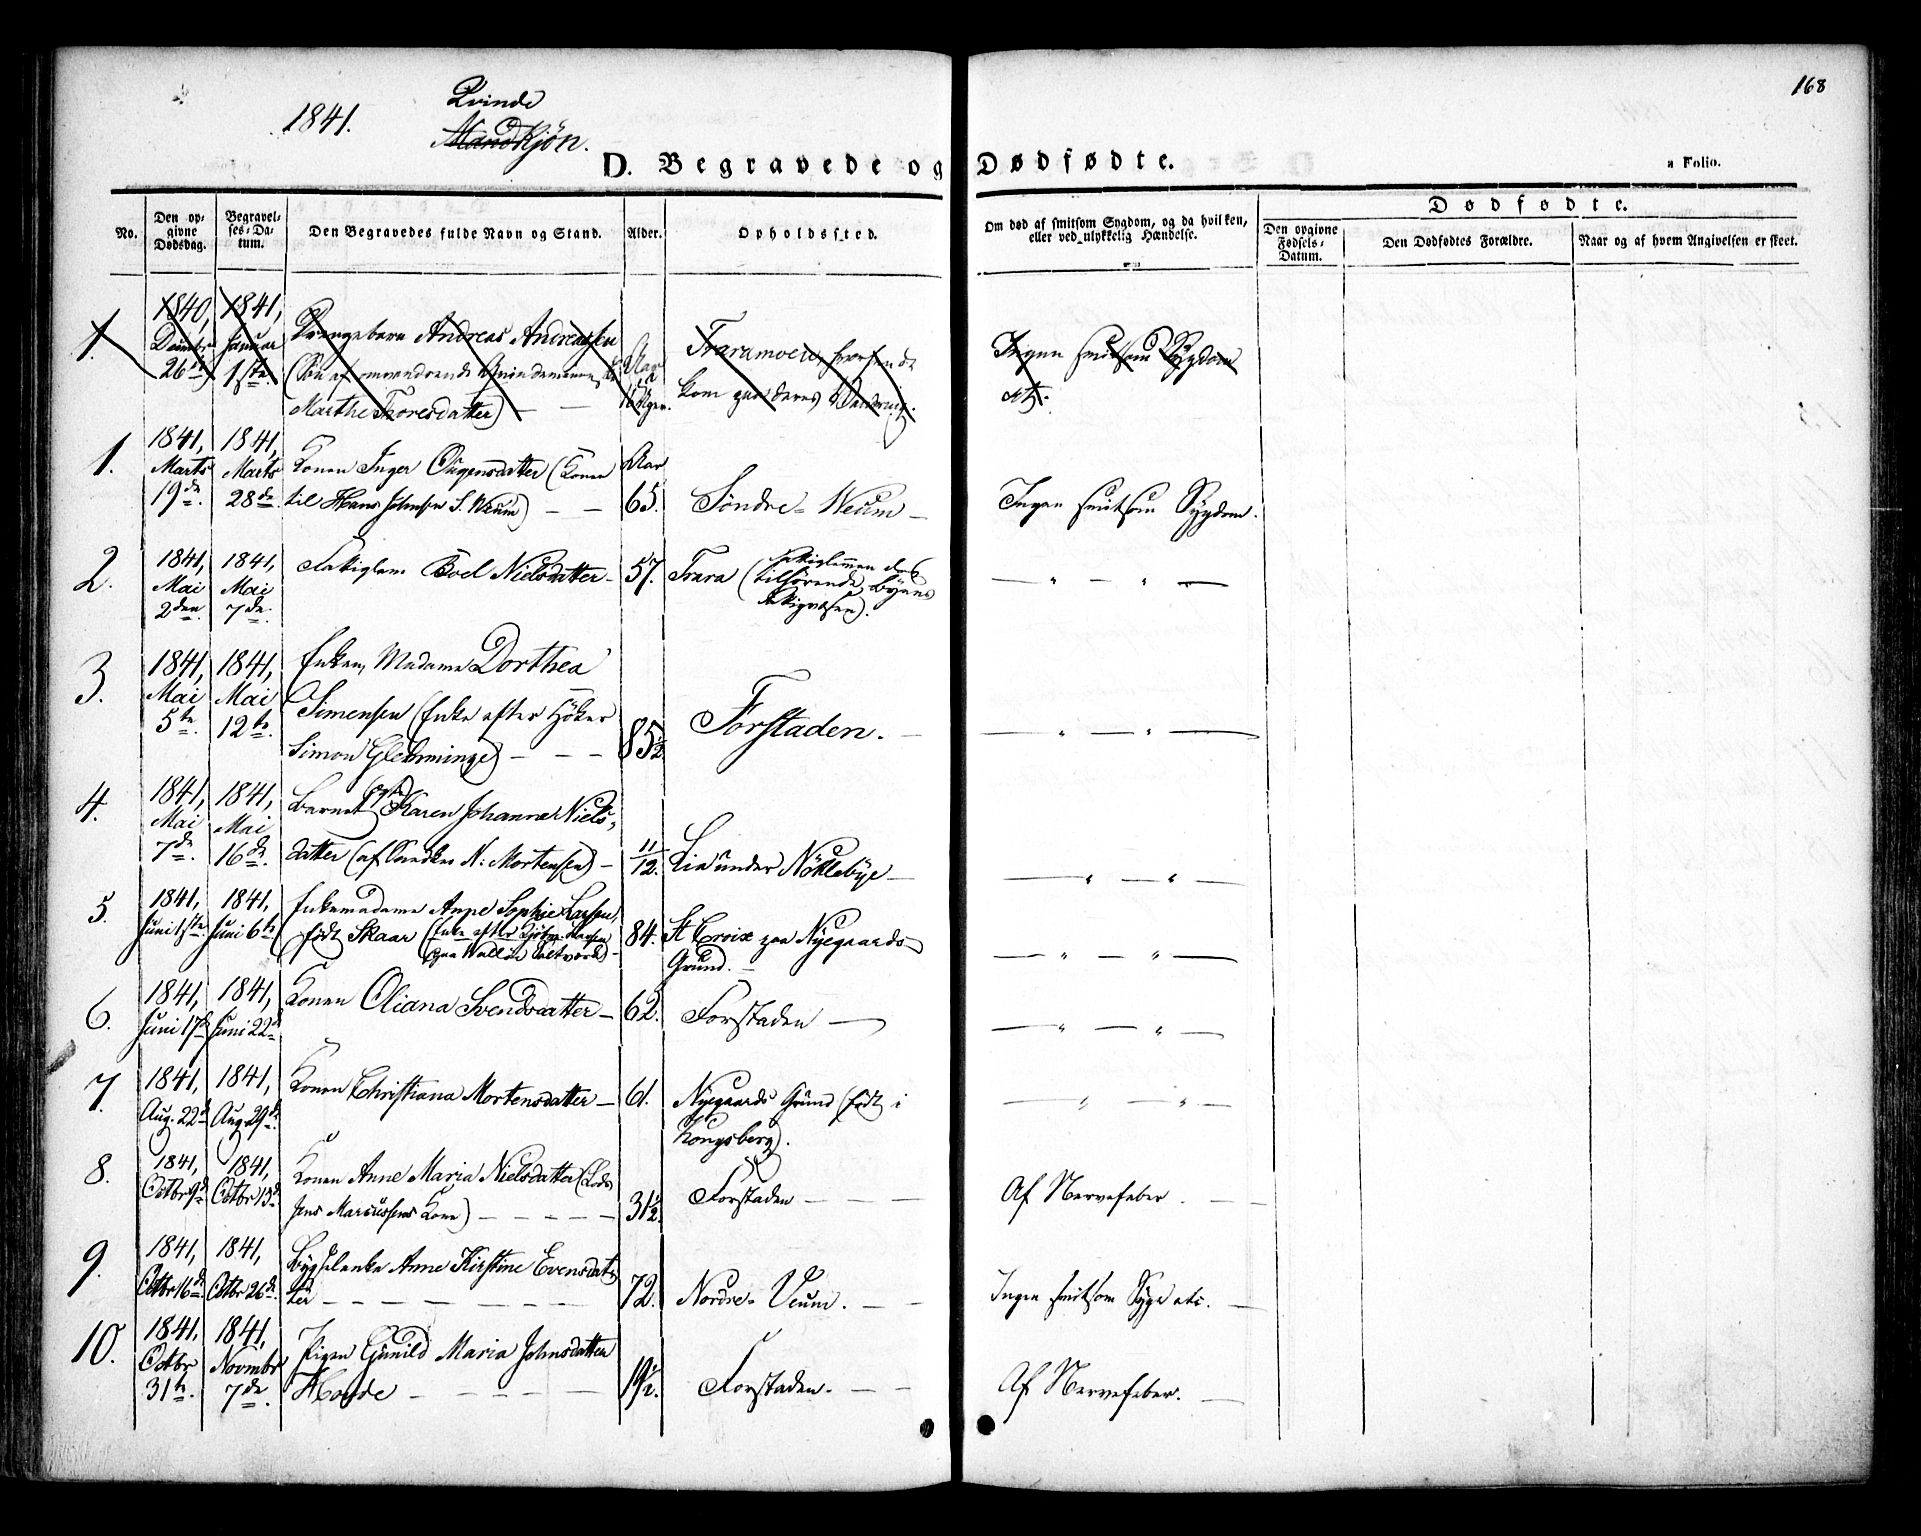 168
1841.
Qvinde
MandKjön.
D. Begravede og Dødfødte.
a Folio.
No.
Den opgivne Dødsdag.
Begravelses-Datum.
Den Begravedes fulde Navn og Stand.
Alder.
Opholdssted.
Om død af smitsom Sygdom, og da hvilken, eller ved ulykkelig Hændelse.
Dødfødte.
Den opgivne Fødsels-Datum.
Den Dødfødtes Forældre.
Naar og af hvem Angivelsen er skeet.
1. 1840, 1841,
26de 1ste Drengebarn Andreas Andreassen
(Søn af omvandrende
Marthe Thoresdatter) — —
Ingen smitsom Sygdom
etc.
1. 1841, Marts 19de. 1841, Marts 28de.
Konen Inger (Konen
til Hans Johnsen S. Weum) — —
Aar 65. Söndre-Weum — Ingen smitsom Sygdom.
2. 1841, Mai 2den. 1841, Mai 7de.
Boel Nielsdatter — 57. Trara (
tilhørende Byens
— " — " —
3. 1841, Mai 5te. 1841, Mai 12te.
Enken, Madame Dorthea
Simensen (Enke efter Höker
Simon Glemminge) — — — 85½ Forstaden. —
— " — " —
4. 1841, Mai 7de. 1841, Mai 16de.
Barnet Karen Johanne Niels-
datter (af N: Mortensen) — 11/12. Lia under Nöklebye —
— " — " —
5. 1841, Juni 1ste. 1841, Juni 6te
Enkemadame Anne Sophie Larsen,
födt Skaar (Enke efter
paa Walløe Saltværk) — 84. St Croix paa Nyegaards-
Grund. —
— " — " —
6. 1841, Juni 17de 1841, Juni 22de
Konen Oliana Svendsdatter — 62. Forstaden —
— " — " —
7. 1841, Aug. 22de 1841, Aug. 29de.
Konen Christiana Mortensdatter — 61. Nyegaards Grund (födt i
Kongsberg).
— " — " —
8. 1841, Octbr 9de 1841, Octbr 13de
Konen Anne Maria Nielsdatter (Lods
Jens Marcussens Kone) — — — — 31½. Forstaden — — — Af Nervefeber. — —
9. 1841, Octbr 16de 1841, Octbr 26de.
Anne Kirstine Evensdat-
ter — — — — — 72. Nordre-Veum. — — Ingen smitsom Syge etc. —
10. 1841, Octbr 31te. 1841, Novmbr 7de.
Pigen Gunild Maria Johnsdatter
— — — — 19½. Forstaden. — — Af Nervefeber. —